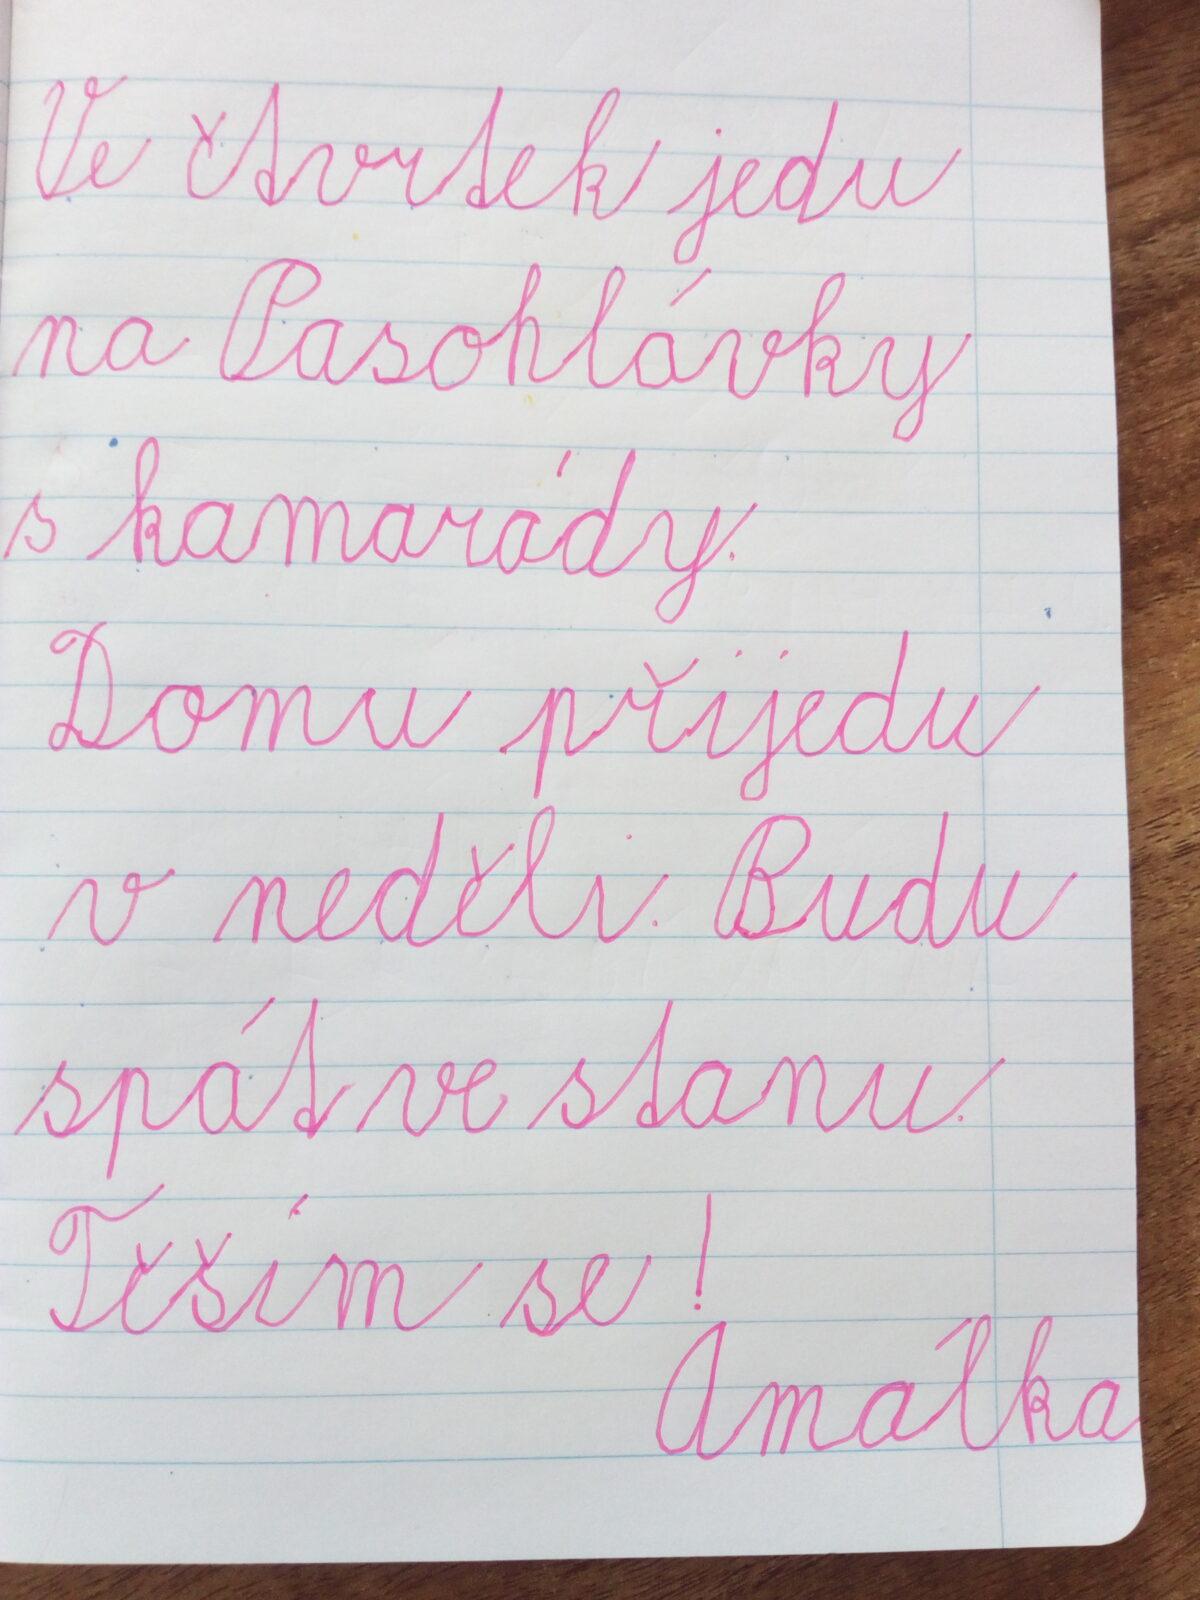 Ve čtvrtek jedu
na Pasohlávky
s kamarády.
Domu přijedu
v neděli. Budu
spát ve stanu.
Těším se!
Amálka